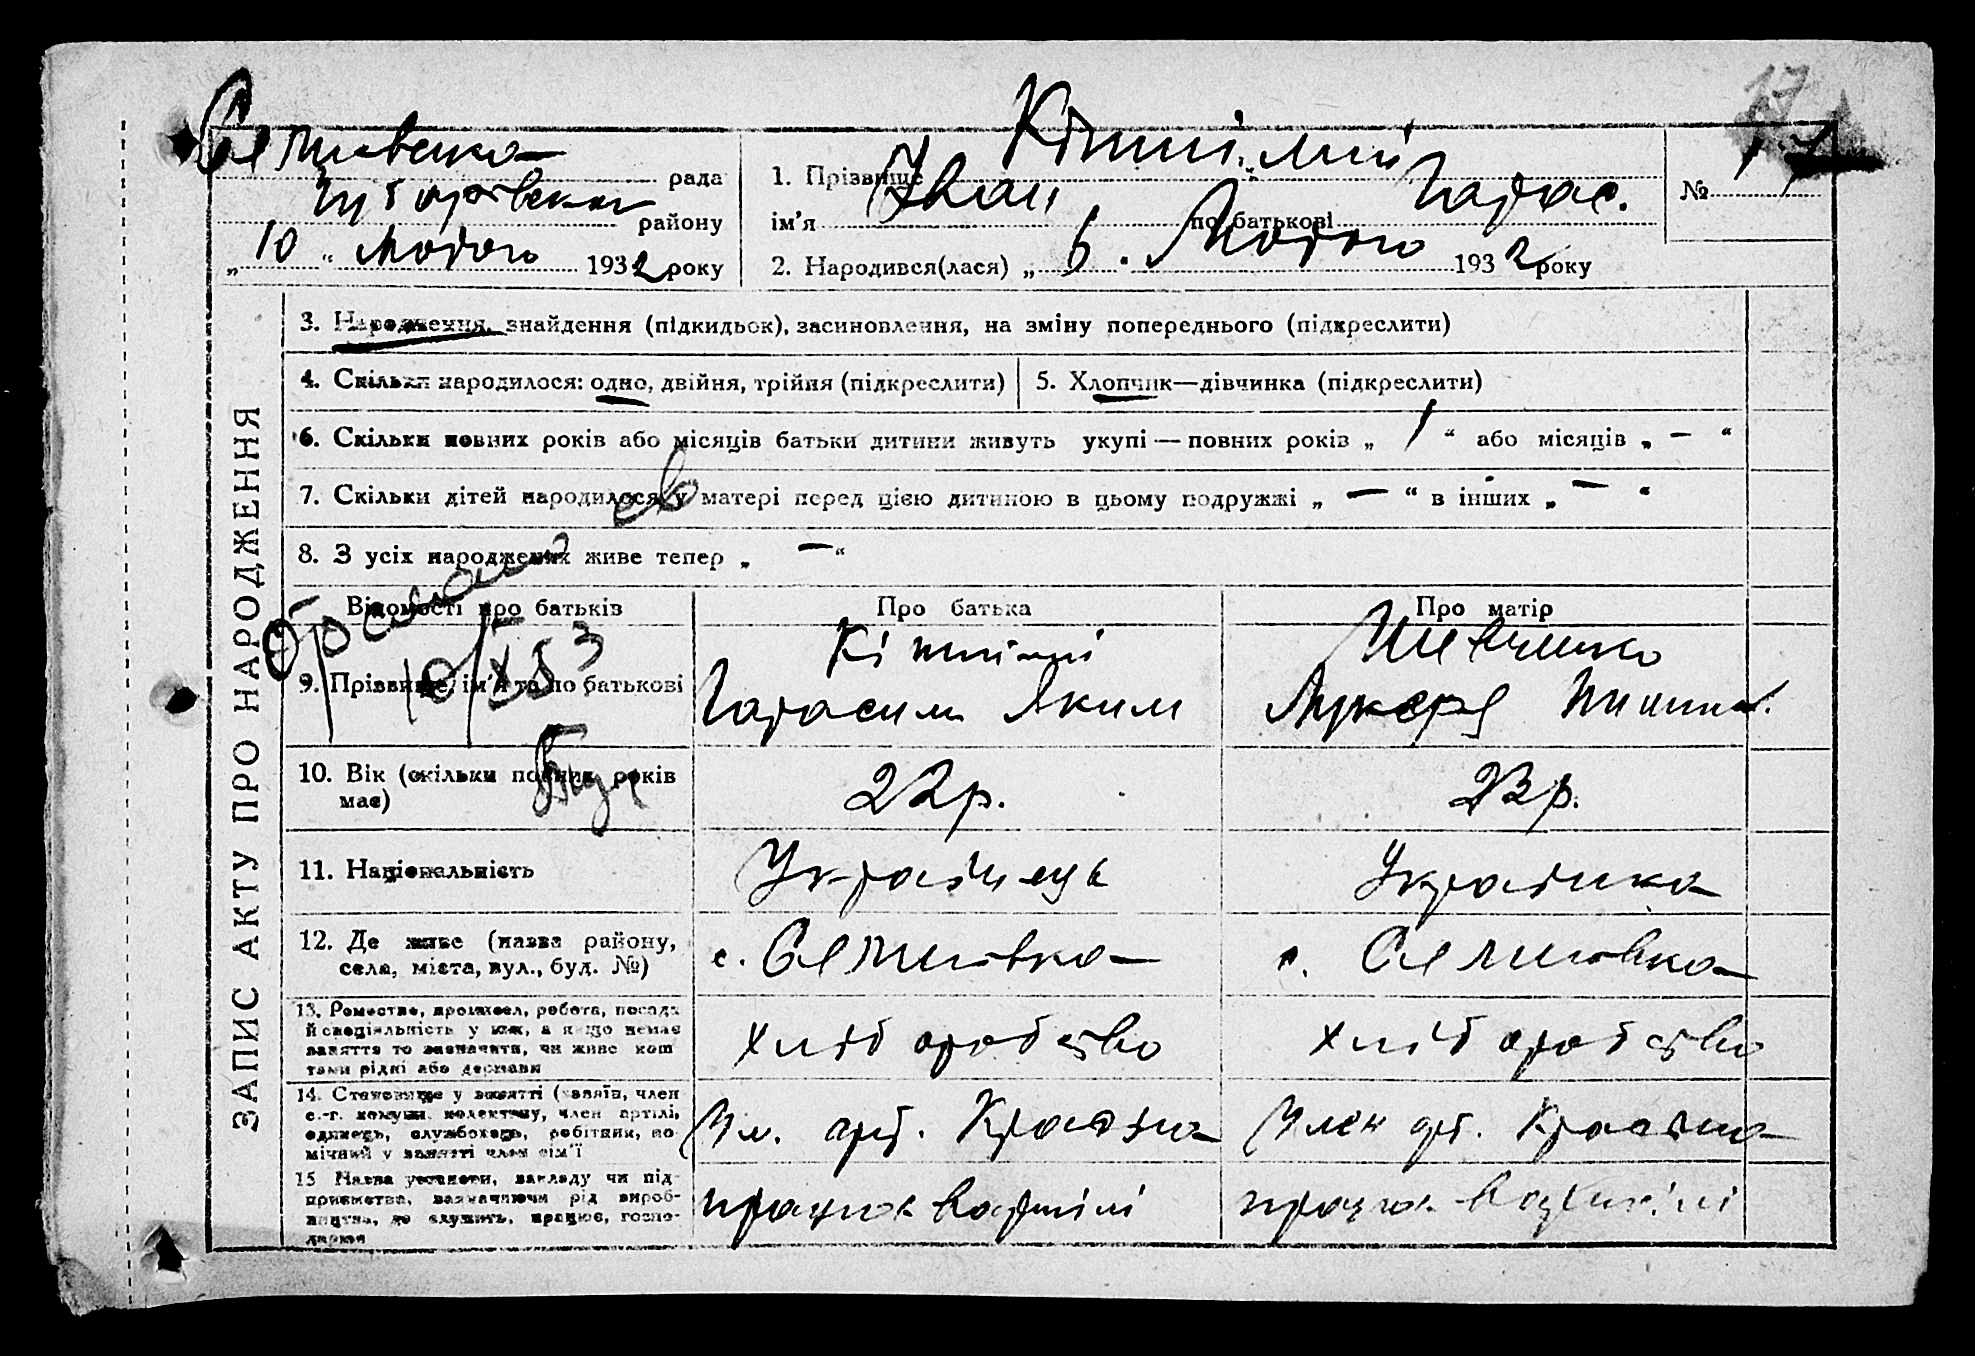 17
рада
Чубарівськ
району
„ 10 “ Лютого 1932 року
1. Прізвище
ім’я Іван по батькові Гарас.
№ 17
2. Народився(лася) „ 6 . Лютого 1932 року
ЗАПИС АКТУ ПРО НАРОДЖЕННЯ
3. Народження, знайдення (підкидьок), засиновлення, на зміну попереднього (підкреслити)
4. Скільки народилося: одно, двійня, трійня (підкреслити)
5. Хлопчик—дівчинка (підкреслити)
6. Скільки повних років або місяців батьки дитини живуть укупі — повних років „ 1 “ або місяців „ — “
7. Скільки дітей народилося у матері перед цією дитиною в цьому подружжі „ — “ в інших „ — “
8. З усіх народжених живе тепер „ — “
Відомості про батьків
Про батька
Про матір
9. Прізвище, ім’я та по батькові
Гарасим Яким
Шевченко
Лукеря
10. Вік (скільки повних років має)
22 р.
23 р.
11. Національність
Українець
Українка
12. Де живе (назва району, села, міста, вул., буд. №)
с.
с.
13. Ремество, промисел, робота, посада й спеціяльність у них, а якщо немає заняття то зазначити, чи живе кош тами рідні або держави
хліборобство
хліборобство
14. Становище у занятті (хазяїн, член с.-г. комуни, колективу, член артілі, одинець, службовець, робітник, по- мічний у занятті член сім’ї
Чл. арт.
Член арт.
15 Назва установи, закладу чи під- приємства, зазначаючи рід вироб- ництва, де служить, працює, госпо- дарює
працює в артілі
працює в артілі